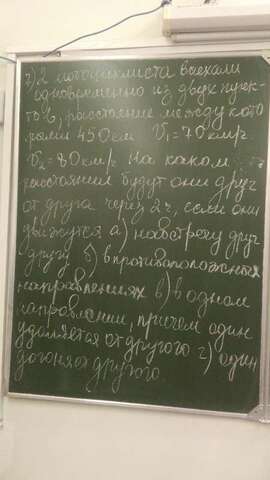 2) 2 мотоциклиста выехали
одновременно из двух пунк-
тов, расстояние между кото
рыми 450 км V₁=70км/ч
V₂=80км/ч На каком
расстоянии будут они друг
от друга через 2ч, если они
движутся а) навстречу друг
другу б) в противоположных
направлениях в) в одном
направлении, причем один
удаляется от другого г) один
догоняет другого.